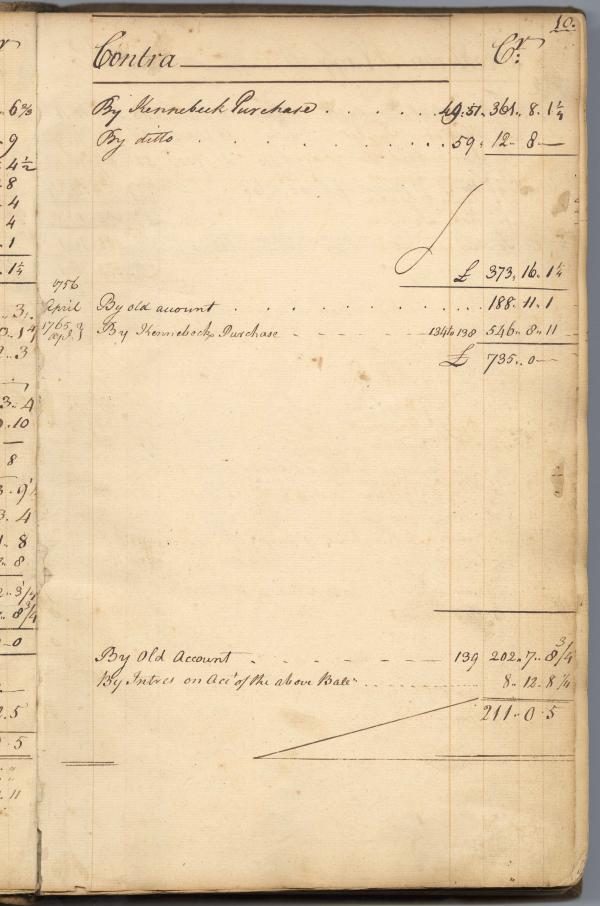 10.
Contra Cr.
By Kennebeck Purchase . . . . . 49:51. 361. 8. 1 1/4
By ditto . . . . . . . 59. 12.. 8 —
£ 373, 16. 1 1/4
1756
April By old account . . . . . . . . . . 188. 11. 1
1765 By Kennebeck Purchase 134 to 138 546.. 8.. 11
apl. 3
£ 735.. 0 —
By Old Account 139 202.. 7.. 8 3/4
By Intres on Acct of the above Bale 8.. 12. 8 1/4
211.. 0. 5